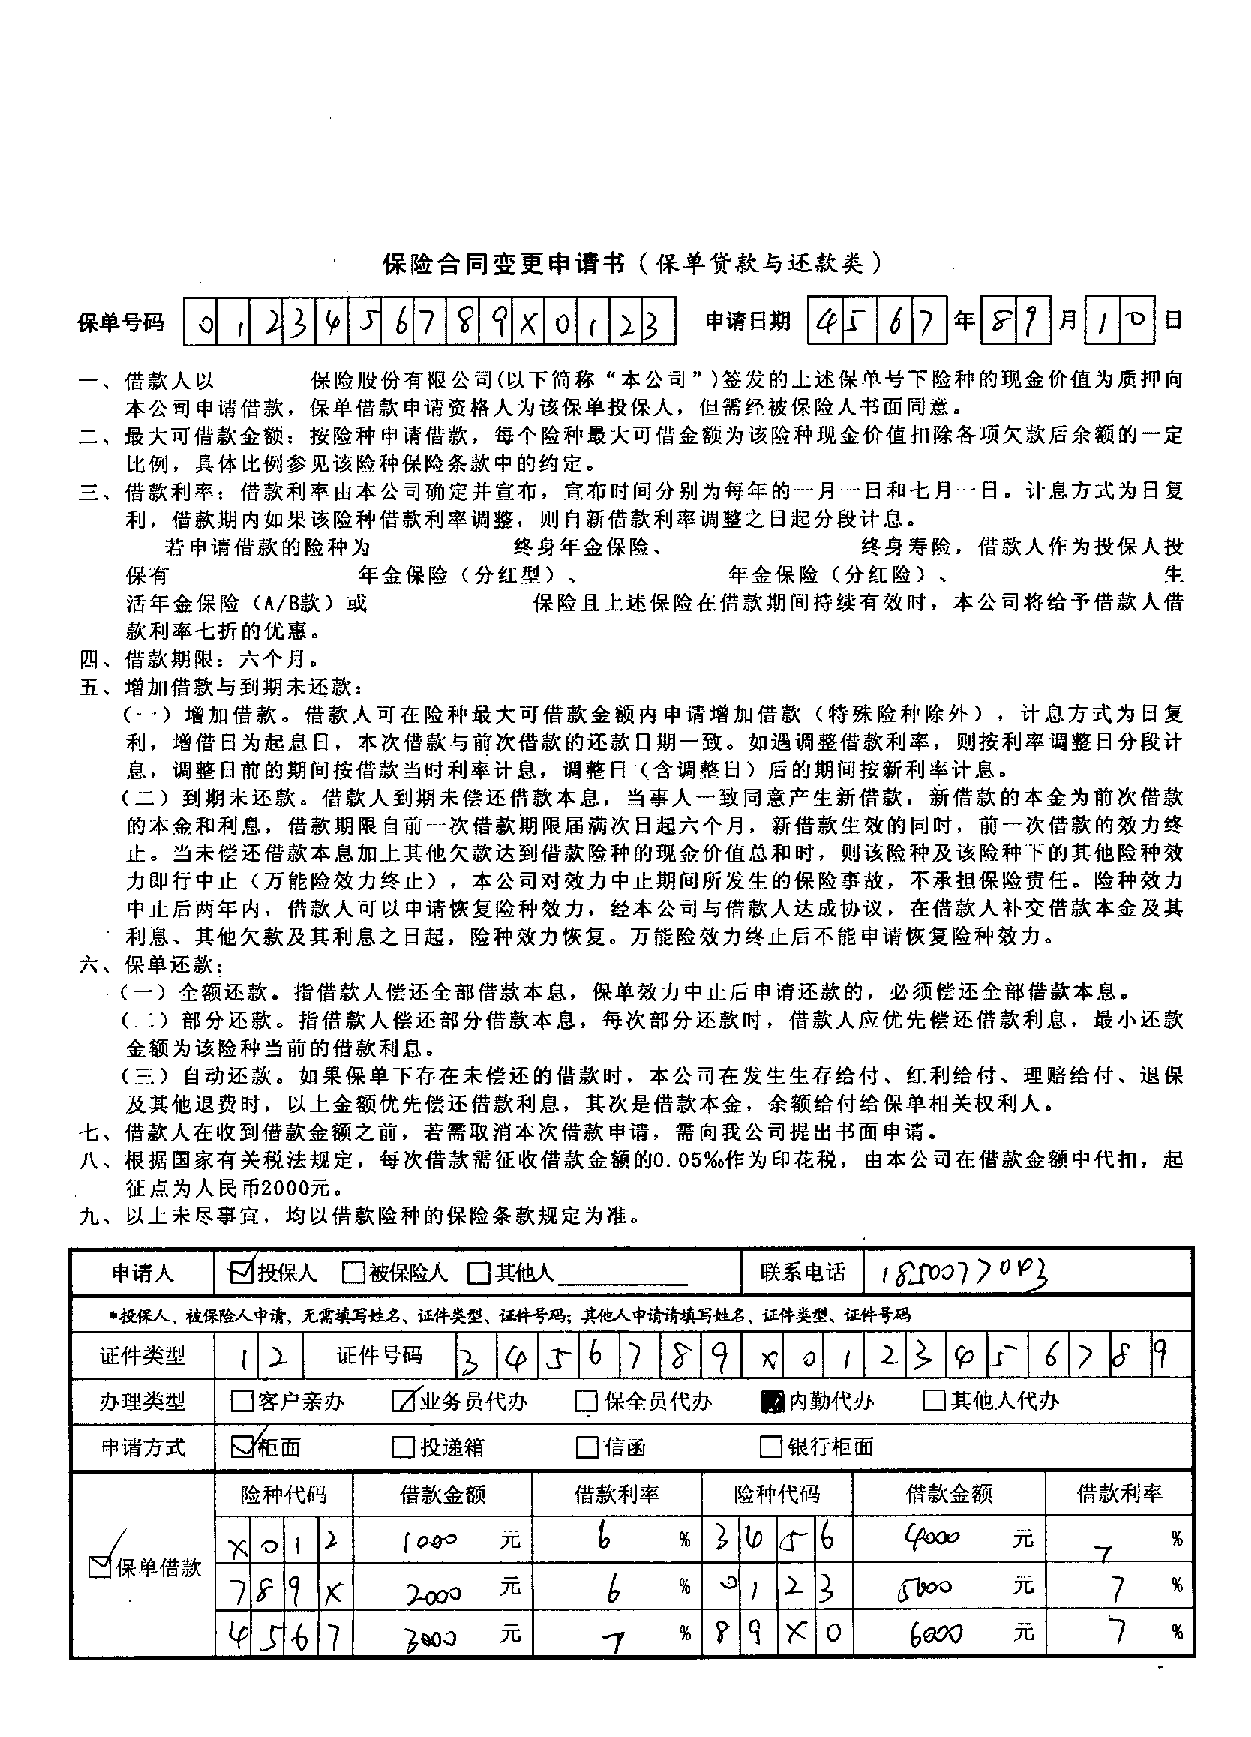 保险合同变更申请书（保单贷款与还款类）
保单号码 0123456789X0123 申请日期 4567年89月10日
一、借款人以 保险股份有限公司(以下简称“本公司”)签发的上述保单号下险种的现金价值为质押向
本公司申请借款，保单借款申请资格人为该保单投保人，但需经被保险人书面同意。
二、最大可借款金额：按险种申请借款，每个险种最大可借金额为该险种现金价值扣除各项欠款后余额的一定
比例，具体比例参见该险种保险条款中的约定。
三、借款利率：借款利率由本公司确定并宣布，宣布时间分别为每年的一月一日和七月一日。计息方式为日复
利，借款期内如果该险种借款利率调整，则自新借款利率调整之日起分段计息。
若申请借款的险种为 终身年金保险、 终身寿险，借款人作为投保人投
保有 年金保险（分红型）、 年金保险（分红险）、 生
活年金保险（A/B款）或 保险且上述保险在借款期间持续有效时，本公司将给予借款人借
款利率七折的优惠。
四、借款期限：六个月。
五、增加借款与到期未还款：
（一）增加借款。借款人可在险种最大可借款金额内申请增加借款（特殊险种除外），计息方式为日复
利，增借日为起息日，本次借款与前次借款的还款日期一致。如遇调整借款利率，则按利率调整日分段计
息，调整日前的期间按借款当时利率计息，调整日（含调整日）后的期间按新利率计息。
（二）到期未还款。借款人到期未偿还借款本息，当事人一致同意产生新借款，新借款的本金为前次借款
的本金和利息，借款期限自前一次借款期限届满次日起六个月，新借款生效的同时，前一次借款的效力终
止。当未偿还借款本息加上其他欠款达到借款险种的现金价值总和时，则该险种及该险种下的其他险种效
力即行中止（万能险效力终止），本公司对效力中止期间所发生的保险事故，不承担保险责任。险种效力
中止后两年内，借款人可以申请恢复险种效力，经本公司与借款人达成协议，在借款人补交借款本金及其
利息、其他欠款及其利息之日起，险种效力恢复。万能险效力终止后不能申请恢复险种效力。
六、保单还款：
（一）全额还款。指借款人偿还全部借款本息，保单效力中止后申请还款的，必须偿还全部借款本息。
（二）部分还款。指借款人偿还部分借款本息，每次部分还款时，借款人应优先偿还借款利息，最小还款
金额为该险种当前的借款利息。
（三）自动还款。如果保单下存在未偿还的借款时，本公司在发生生存给付、红利给付、理赔给付、退保
及其他退费时，以上金额优先偿还借款利息，其次是借款本金，余额给付给保单相关权利人。
七、借款人在收到借款金额之前，若需取消本次借款申请，需向我公司提出书面申请。
八、根据国家有关税法规定，每次借款需征收借款金额的0.05‰作为印花税，由本公司在借款金额中代扣，起
征点为人民币2000元。
九、以上未尽事宜，均以借款险种的保险条款规定为准。
申请人 ☑投保人 □被保险人 □其他人 联系电话
*投保人、被保险人申请、无需填写姓名、证件类型、证件号码；其他人申请请填写姓名、证件类型、证件号码
证件类型 12 证件号码 3456789X0123456789
办理类型 □客户亲办 ☑业务员代办 □保全员代办 ■内勤代办 □其他人代办
申请方式 ☑柜面 □投递箱 □信函 □银行柜面
险种代码 借款金额 借款利率 险种代码 借款金额 借款利率
X012 1000 元 6 % 3456 4000 元 7 %
☑保单借款
789X 2000 元 6 % 0123 5000 元 7 %
4567 3000 元 7 % 89X0 6000 元 7 %